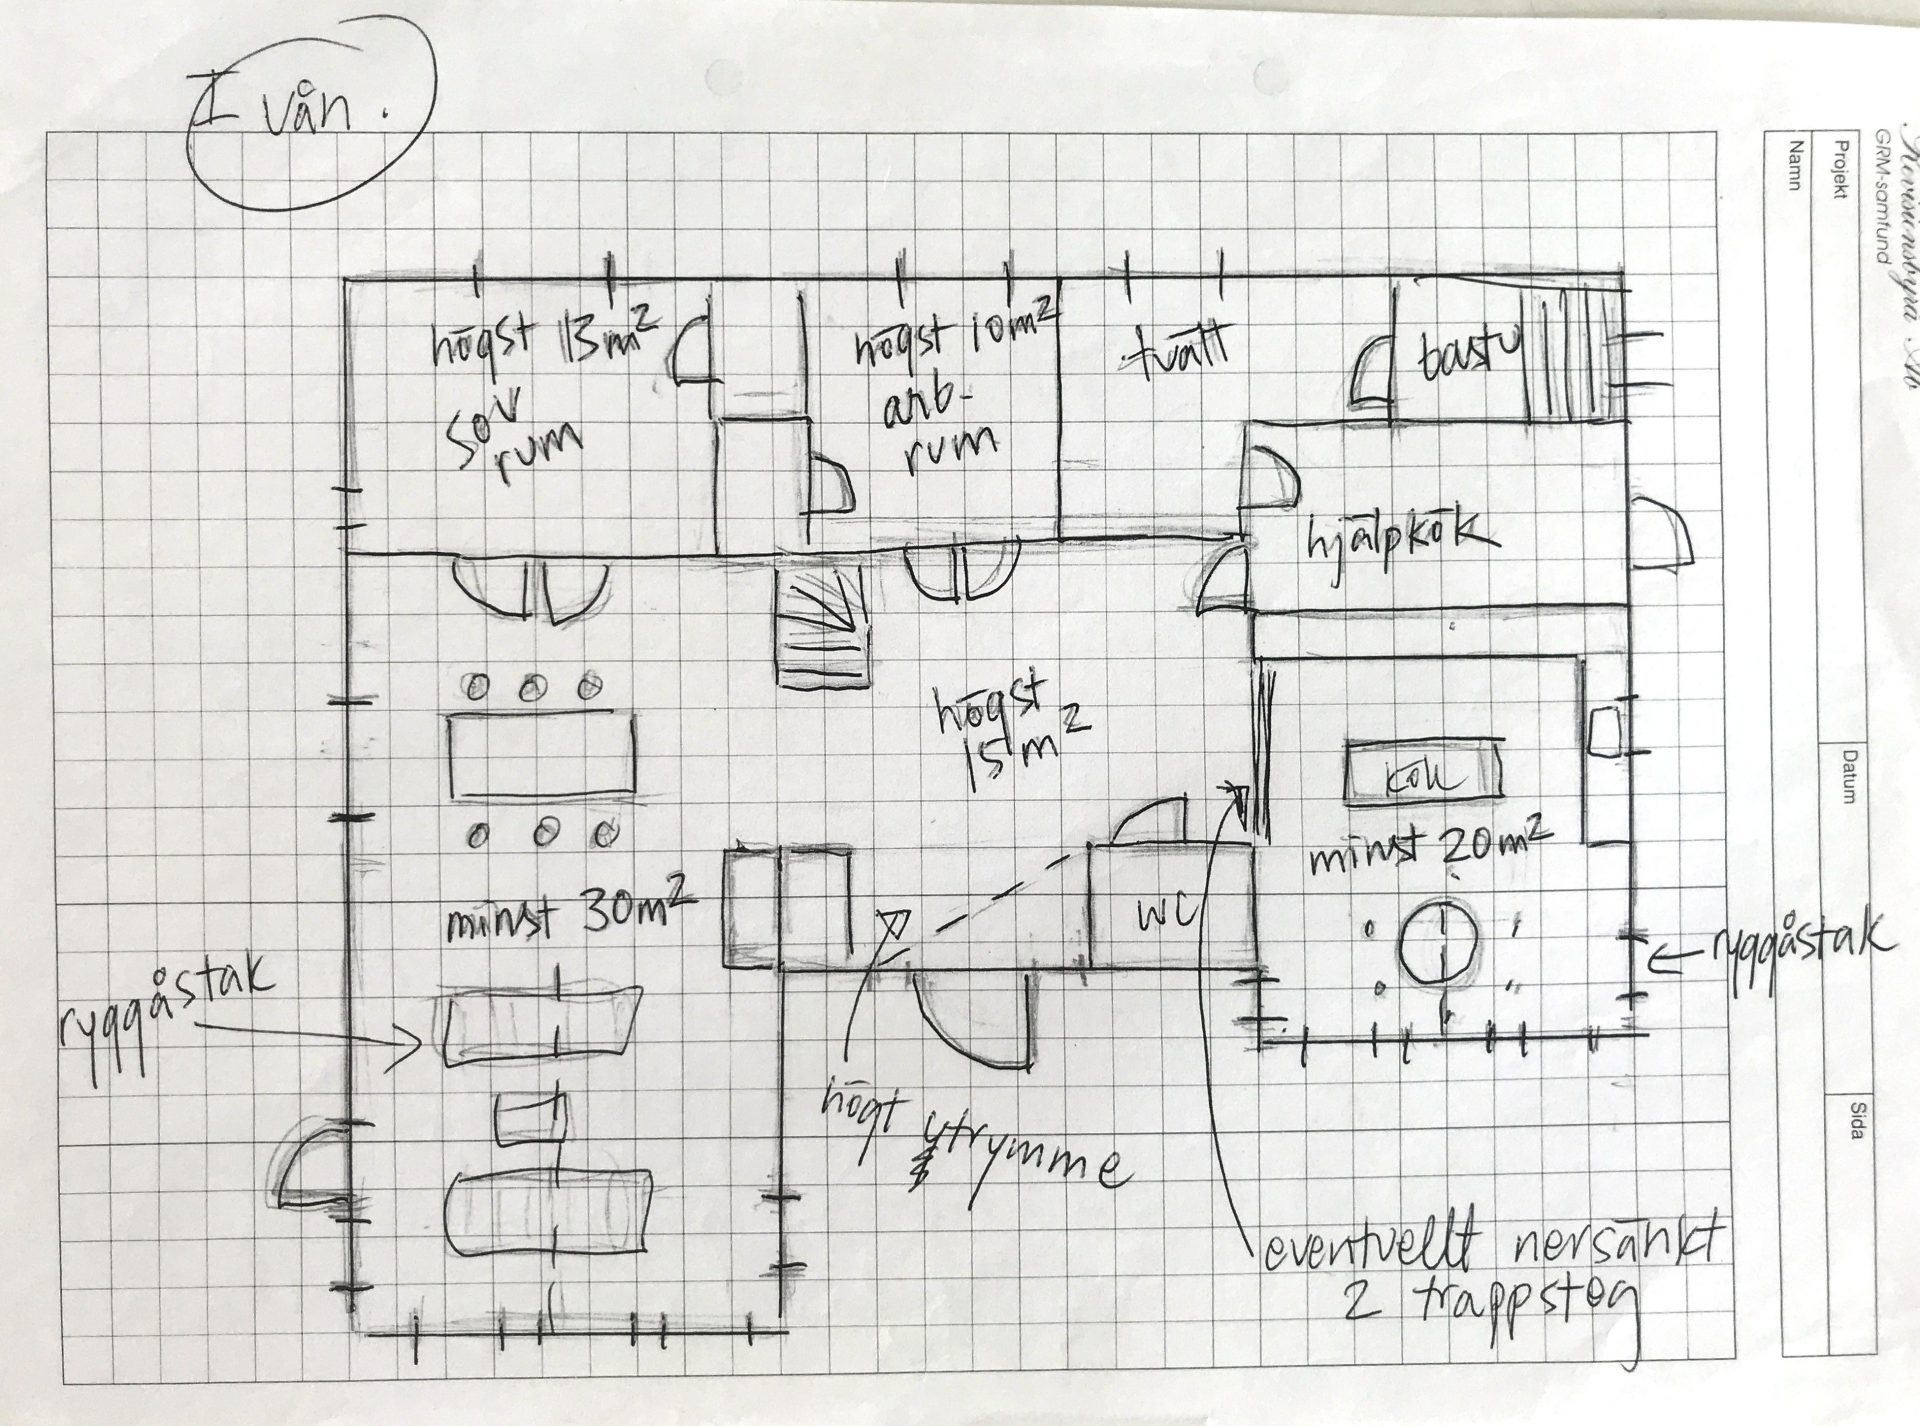 I vån.
högst 13m²
sov
rum
högst 10m²
arb-
rum
tvätt
bastu
hjälpkök
högst
15m²
kök
minst 20m²
minst 30m²
wc
ryggåstak
ryggåstak
högt ytrymme
eventuellt nersänkt
2 trappsteg
GRM-samfund
Projekt
Namn
Datum
Sida